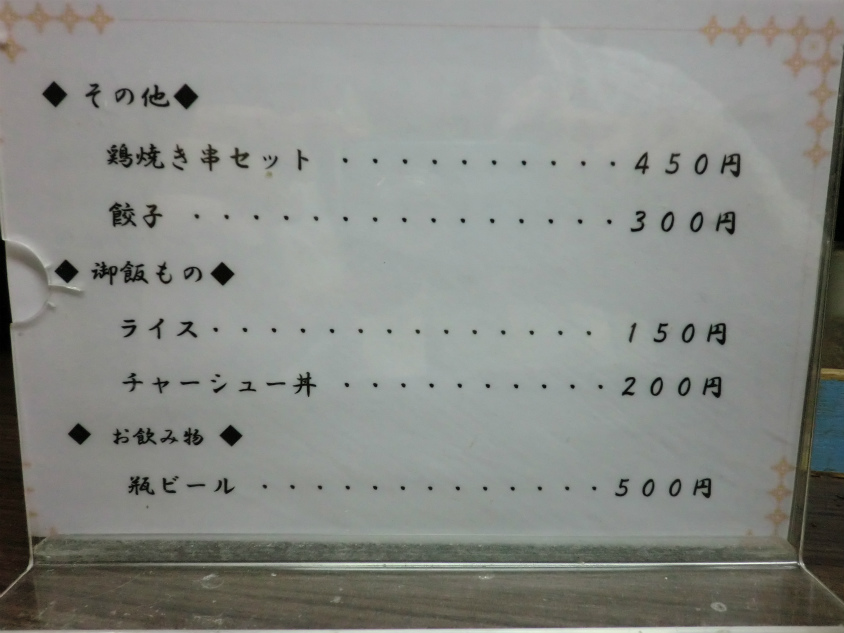 ◆ その他◆
鶏焼き串セット ・・・・・・・・・・450円
餃子 ・・・・・・・・・・・・・・・300円
◆ 御飯もの◆
ライス・・・・・・・・・・・・・・ 150円
チャーシュー丼 ・・・・・・・・・・200円
◆ お飲み物 ◆
瓶ビール ・・・・・・・・・・・・・500円